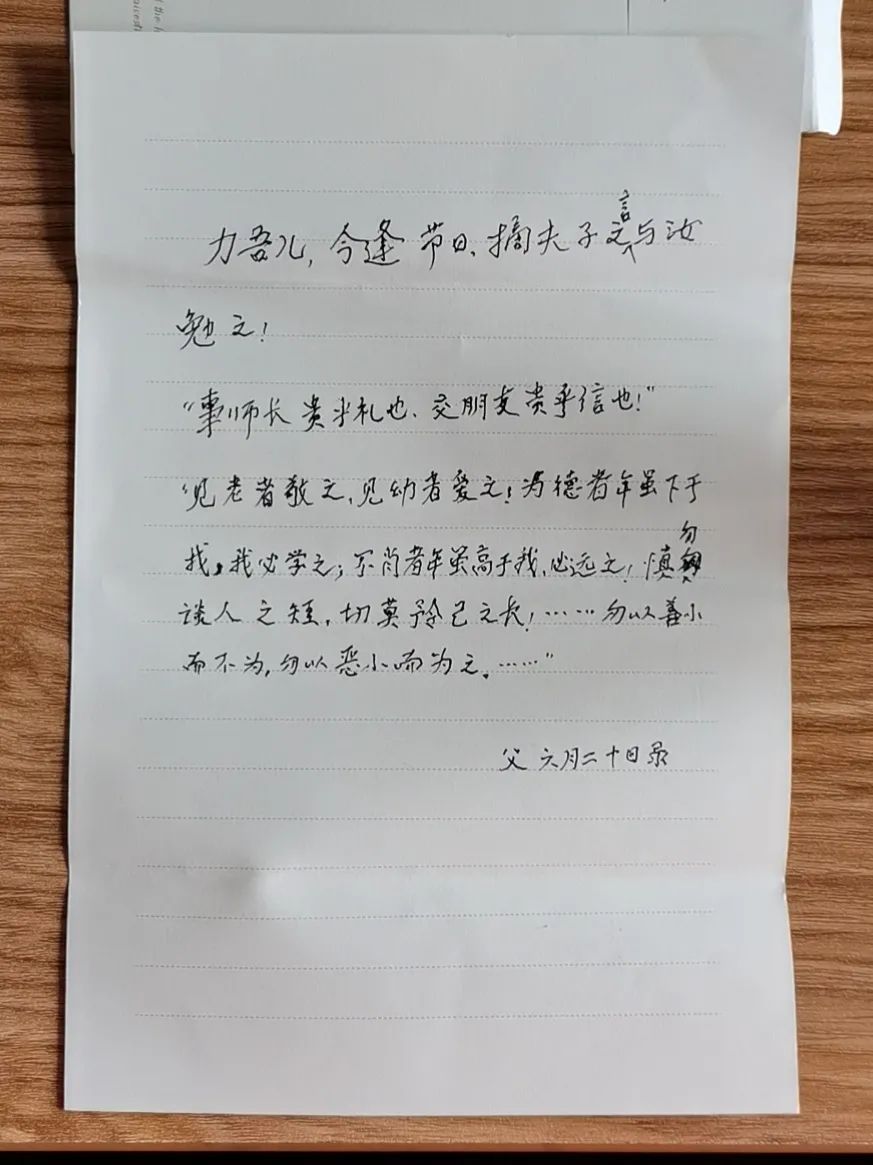 力吾儿,今逢节日、摘夫子之言与汝
勉之!
“事师长贵乎礼也、交朋友贵乎信也!”
“见老者敬之,见幼者爱之!有德者年虽下于
我,我必学之;不肖者年虽高于我,必远之!慎勿
谈人之短,切莫矜己之长!……勿以善小
而不为,勿以恶小而为之。……”
父 六月二十日录